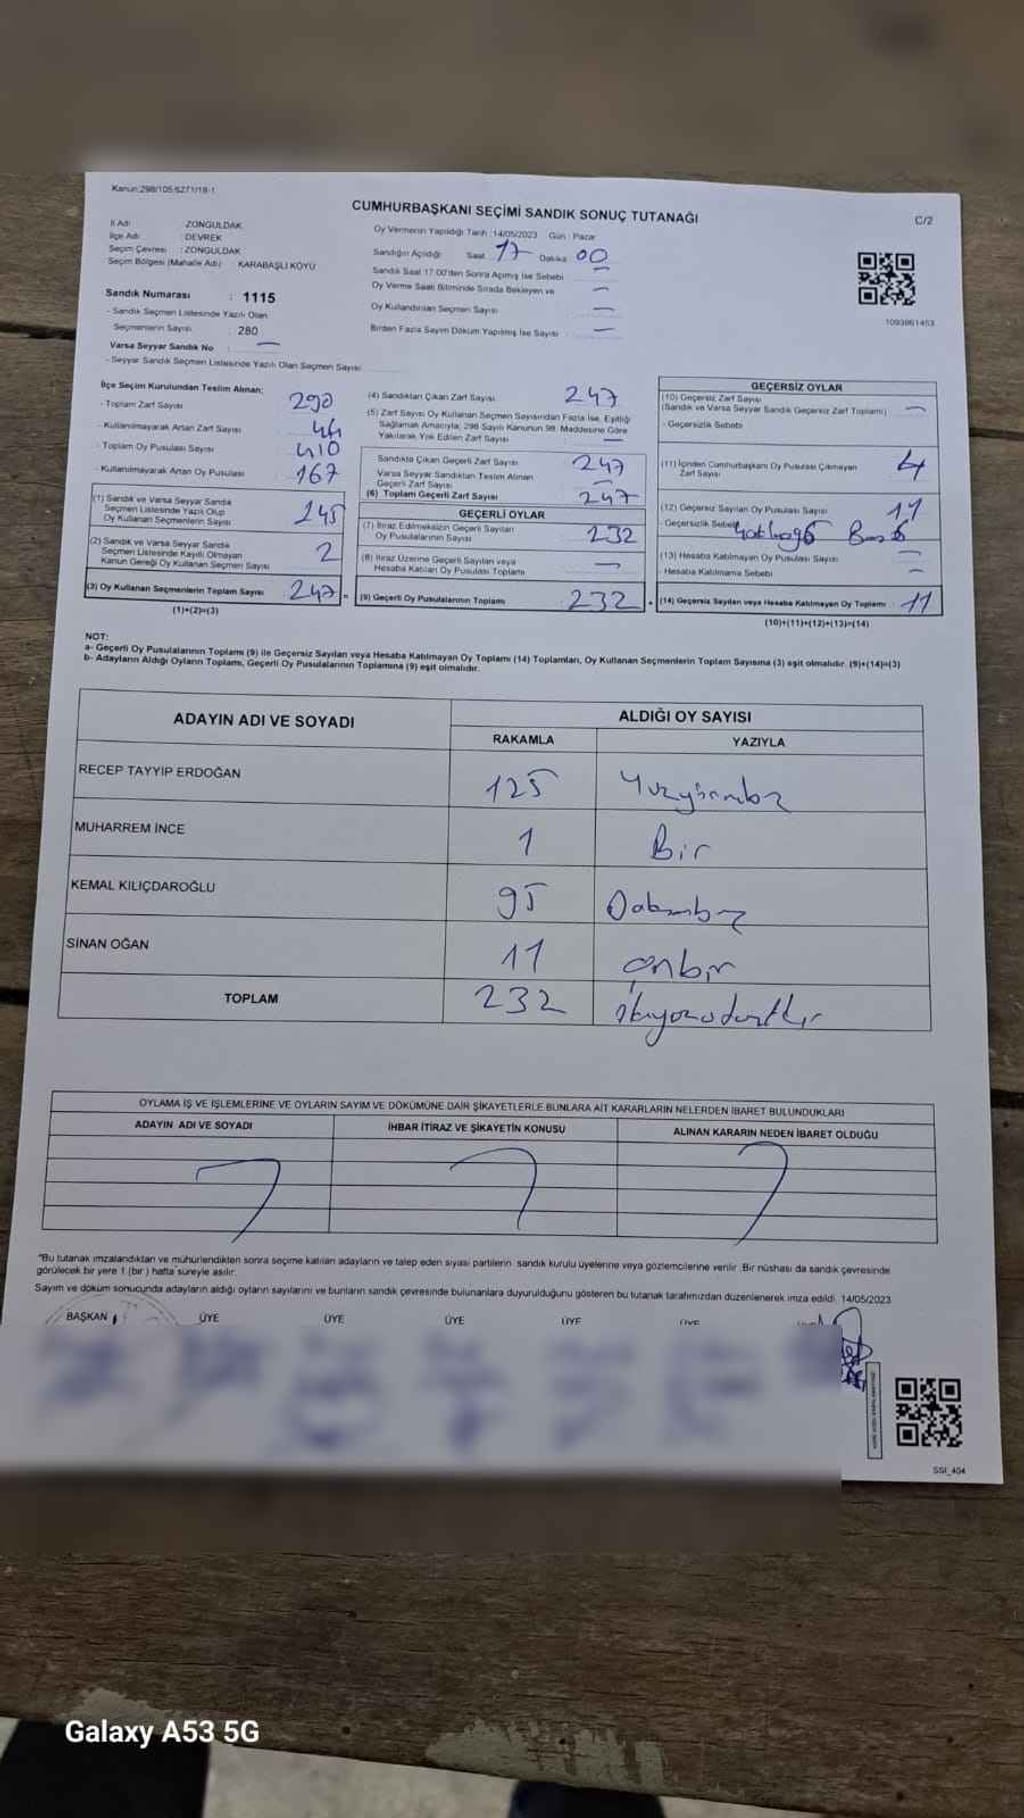 Kanun:298/105,6271/18-1
CUMHURBAŞKANI SEÇİMİ SANDIK SONUÇ TUTANAĞI
C/2
İl Adı : ZONGULDAK
İlçe Adı : DEVREK
Seçim Çevresi : ZONGULDAK
Seçim Bölgesi (Mahalle Adı) : KARABAŞLI KÖYÜ
Sandık Numarası : 1115
- Sandık Seçmen Listesinde Yazılı Olan
Seçmenlerin Sayısı : 280
Varsa Seyyar Sandık No : —
- Seyyar Sandık Seçmen Listesinde Yazılı Olan Seçmen Sayısı
Oy Vermenin Yapıldığı Tarih :14/05/2023 Gün : Pazar
Sandığın Açıldığı Saat 17 Dakika 00
Sandık Saat 17.00'den Sonra Açılmış İse Sebebi —
Oy Verme Saati Bitiminde Sırada Bekleyen ve —
Oy Kullandırılan Seçmen Sayısı —
Birden Fazla Sayım Döküm Yapılmış İse Sayısı —
1093861453
İlçe Seçim Kurulundan Teslim Alınan;
- Toplam Zarf Sayısı 290
- Kullanılmayarak Artan Zarf Sayısı 44
- Toplam Oy Pusulası Sayısı 410
- Kullanılmayarak Artan Oy Pusulası 167
(1) Sandık ve Varsa Seyyar Sandık
Seçmen Listesinde Yazılı Olup
Oy Kullanan Seçmenlerin Sayısı 245
(2) Sandık ve Varsa Seyyar Sandık
Seçmen Listesinde Kayıtlı Olmayan
Kanun Gereği Oy Kullanan Seçmen Sayısı 2
(3) Oy Kullanan Seçmenlerin Toplam Sayısı 247 =
(1)+(2)=(3)
(4) Sandıktan Çıkan Zarf Sayısı 247
(5) Zarf Sayısı Oy Kullanan Seçmen Sayısından Fazla İse, Eşitliği
Sağlamak Amacıyla, 298 Sayılı Kanunun 98. Maddesine Göre
Yakılarak Yok Edilen Zarf Sayısı —
Sandıkta Çıkan Geçerli Zarf Sayısı 247
Varsa Seyyar Sandıktan Teslim Alınan
Geçerli Zarf Sayısı —
(6) Toplam Geçerli Zarf Sayısı 247
GEÇERLİ OYLAR
(7) İtiraz Edilmeksizin Geçerli Sayılan
Oy Pusulalarının Sayısı 232
(8) İtiraz Üzerine Geçerli Sayılan veya
Hesaba Katılan Oy Pusulası Toplamı —
(9) Geçerli Oy Pusulalarının Toplamı 232 +
GEÇERSİZ OYLAR
(10) Geçersiz Zarf Sayısı
(Sandık ve Varsa Seyyar Sandık Geçersiz Zarf Toplamı) —
- Geçersizlik Sebebi
(11) İçinden Cumhurbaşkanı Oy Pusulası Çıkmayan
Zarf Sayısı 4
(12) Geçersiz Sayılan Oy Pusulası Sayısı 11
- Geçersizlik Sebebi
(13) Hesaba Katılmayan Oy Pusulası Sayısı —
- Hesaba Katılmama Sebebi —
(14) Geçersiz Sayılan veya Hesaba Katılmayan Oy Toplamı : 11
(10)+(11)+(12)+(13)=(14)
NOT:
a- Geçerli Oy Pusulalarının Toplamı (9) ile Geçersiz Sayılan veya Hesaba Katılmayan Oy Toplamı (14) Toplamları, Oy Kullanan Seçmenlerin Toplam Sayısına (3) eşit olmalıdır. (9)+(14)=(3)
b- Adayların Aldığı Oyların Toplamı, Geçerli Oy Pusulalarının Toplamına (9) eşit olmalıdır.
ADAYIN ADI VE SOYADI
ALDIĞI OY SAYISI
RAKAMLA YAZIYLA
RECEP TAYYİP ERDOĞAN 125 Yüzyirmibeş
MUHARREM İNCE 1 Bir
KEMAL KILIÇDAROĞLU 95 Doksanbeş
SİNAN OĞAN 11 onbir
TOPLAM 232
OYLAMA İŞ VE İŞLEMLERİNE VE OYLARIN SAYIM VE DÖKÜMÜNE DAİR ŞİKAYETLERLE BUNLARA AİT KARARLARIN NELERDEN İBARET BULUNDUKLARI
ADAYIN ADI VE SOYADI İHBAR İTİRAZ VE ŞİKAYETİN KONUSU ALINAN KARARIN NEDEN İBARET OLDUĞU
"Bu tutanak imzalandıktan ve mühürlendikten sonra seçime katılan adayların ve talep eden siyasi partilerin sandık kurulu üyelerine veya gözlemcilerine verilir. Bir nüshası da sandık çevresinde
görülecek bir yere 1 (bir ) hafta süreyle asılır.
Sayım ve döküm sonucunda adayların aldığı oyların sayılarını ve bunların sandık çevresinde bulunanlara duyurulduğunu gösteren bu tutanak tarafımızdan düzenlenerek imza edildi. 14/05/2023
BAŞKAN ÜYE ÜYE ÜYE ÜYE ÜYE
SSI_404
Galaxy A53 5G